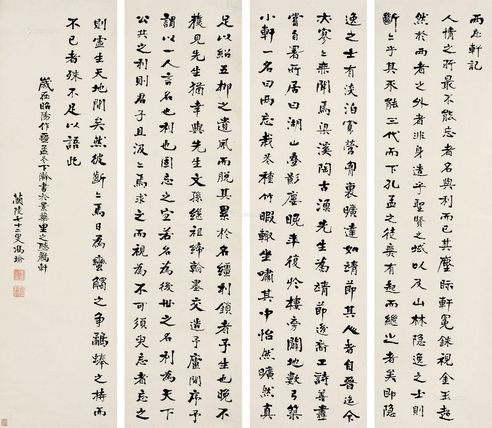 両忘軒記
人情之所最不能忘者名與利而已其塵眎軒冕銖視金玉超
然於両者之外者非身造乎聖賢之域以及山林隱逸之士則
斷斷乎其不能三代而下孔孟之徒無有起而繼之者矣即隱
逸之士有淡泊寡營胷襟曠達如靖節其人者自晉迄今
大寥寥無聞焉梁溪陶古漁先生為靖節逺裔工詩善畫
嘗自署所居曰湖山 影廬晚年復於樓旁闢地數弓築
小軒一名曰両忘栽花種竹暇輙坐嘯其中怡然曠然真
足以紹五柳之遺風而脫其累於名韁利鎖者予生也晚不
獲見先生猶幸與先生文孫継祖締翰墨交造予廬開序予
謂以一人言名也利也固忘之宜若名為後世之名利為天下
公共之利則君子且汲汲焉求之而視為不可須臾忘者忘之
則靈生天地閒矣然彼斷斷焉日為蠻觸之争鷸蚌之持而
不已者殊不足以語此
歲在昭陽作噩孟冬下澣書於景華里之聴鸝軒
蘭陵七十二叟馮瑜